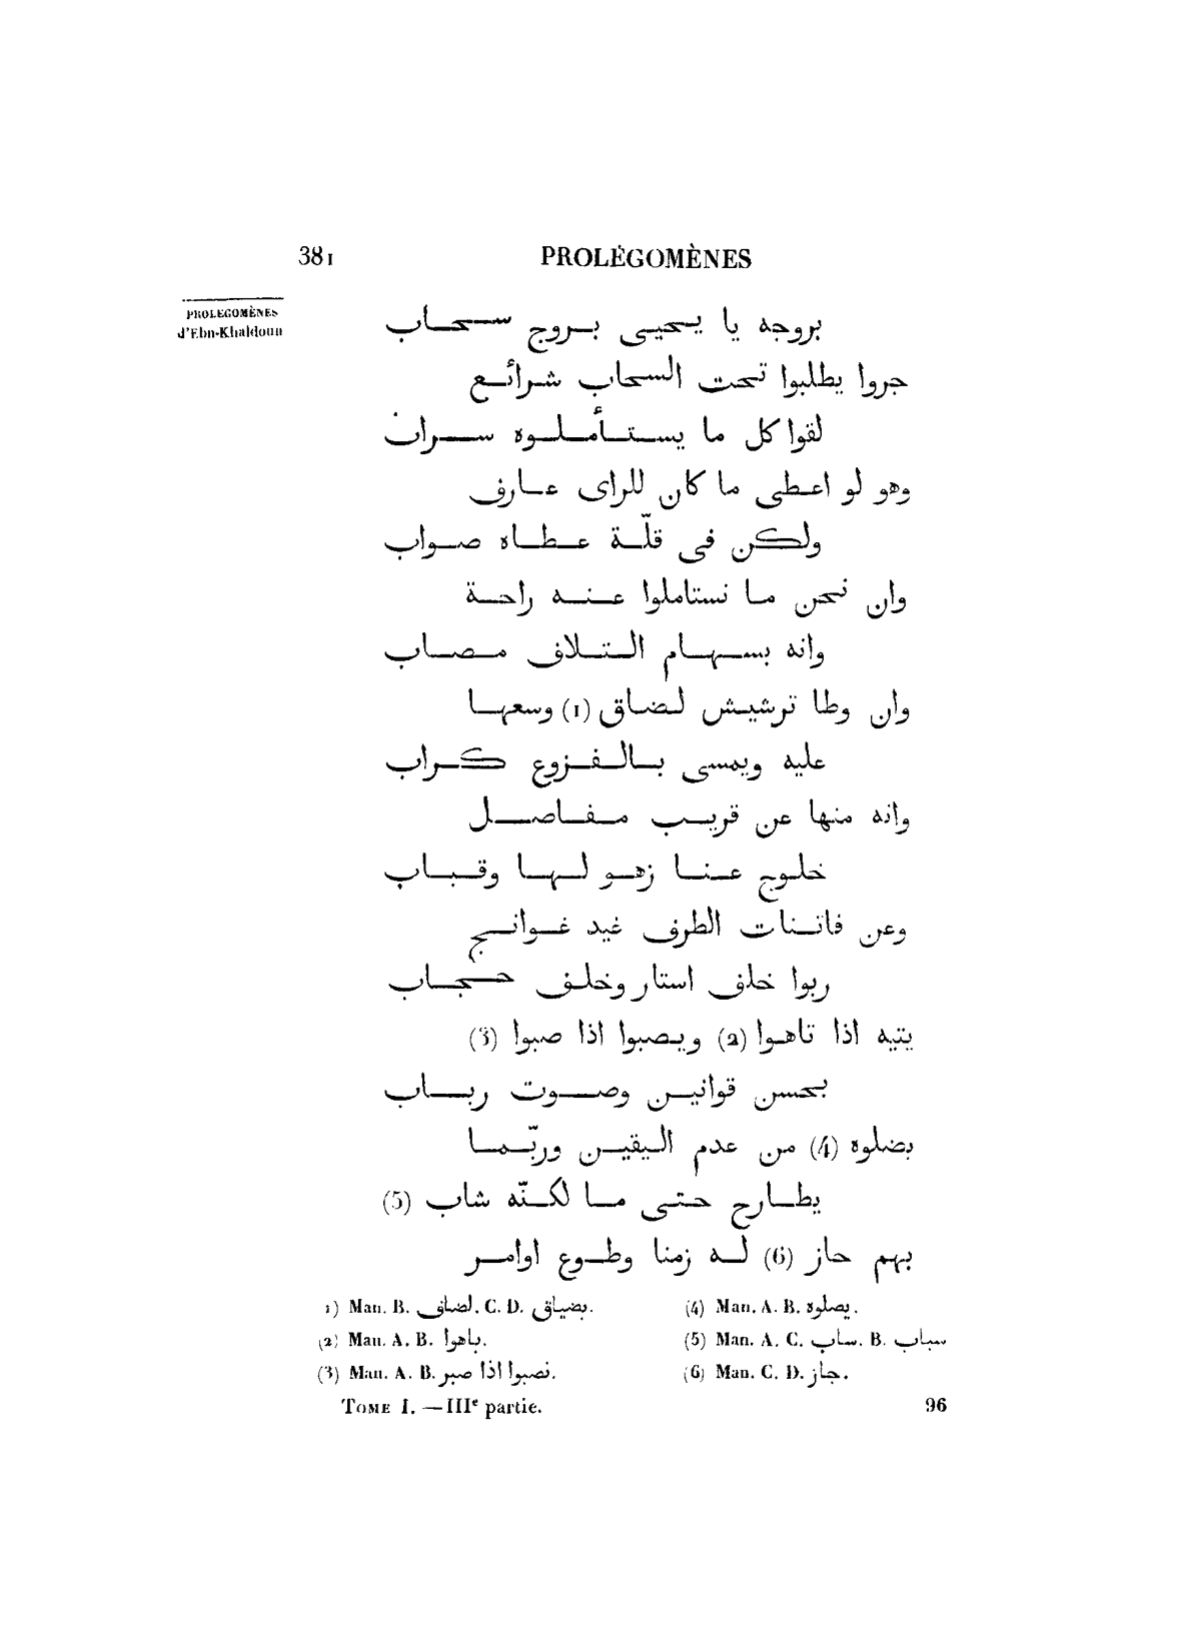 381
PROLÉGOMÈNES
PROLÉGOMÈNES
d'Ebn-Khaldoun
بروجه يا يحيى بروج سحاب
جروا يطلبوا تحت السحاب شرائع
لقوا كل ما يستأملوه سراب
وهو لو اعطى ما كان للراى عارف
ولكن فى قلّة عطاه صواب
وان نحن ما نستاملوا عنه راحة
وانه بسهام التلاف مصاب
وان وطا ترشيش لضاق (1) وسعها
عليه ويمسى بالفزوع كراب
وانه منها عن قريب مفاصل
خلوج عنا زهو لها وقباب
وعن فاتنات الطرف غيد غوانج
ربوا خلف استار وخلف حجاب
يتيه اذا تاهوا (2) ويصبوا اذا صبوا (3)
بحسن قوانين وصوت رباب
بضلوه (4) من عدم اليقين وربّما
يطارح حتى ما لكنّه شاب (5)
بهم حاز (6) له زمنا وطوع اوامر
1) Man. B. لضاف. C. D. بضياق.
(2) Man. A. B. باهوا.
(3) Man. A. B. نصبوا اذا صبر.
(4) Man. A. B. يصلوه.
(5) Man. A. C. ساب. B. سباب
(6) Man. C. D. جاز.
TOME I. — IIIe partie.
96